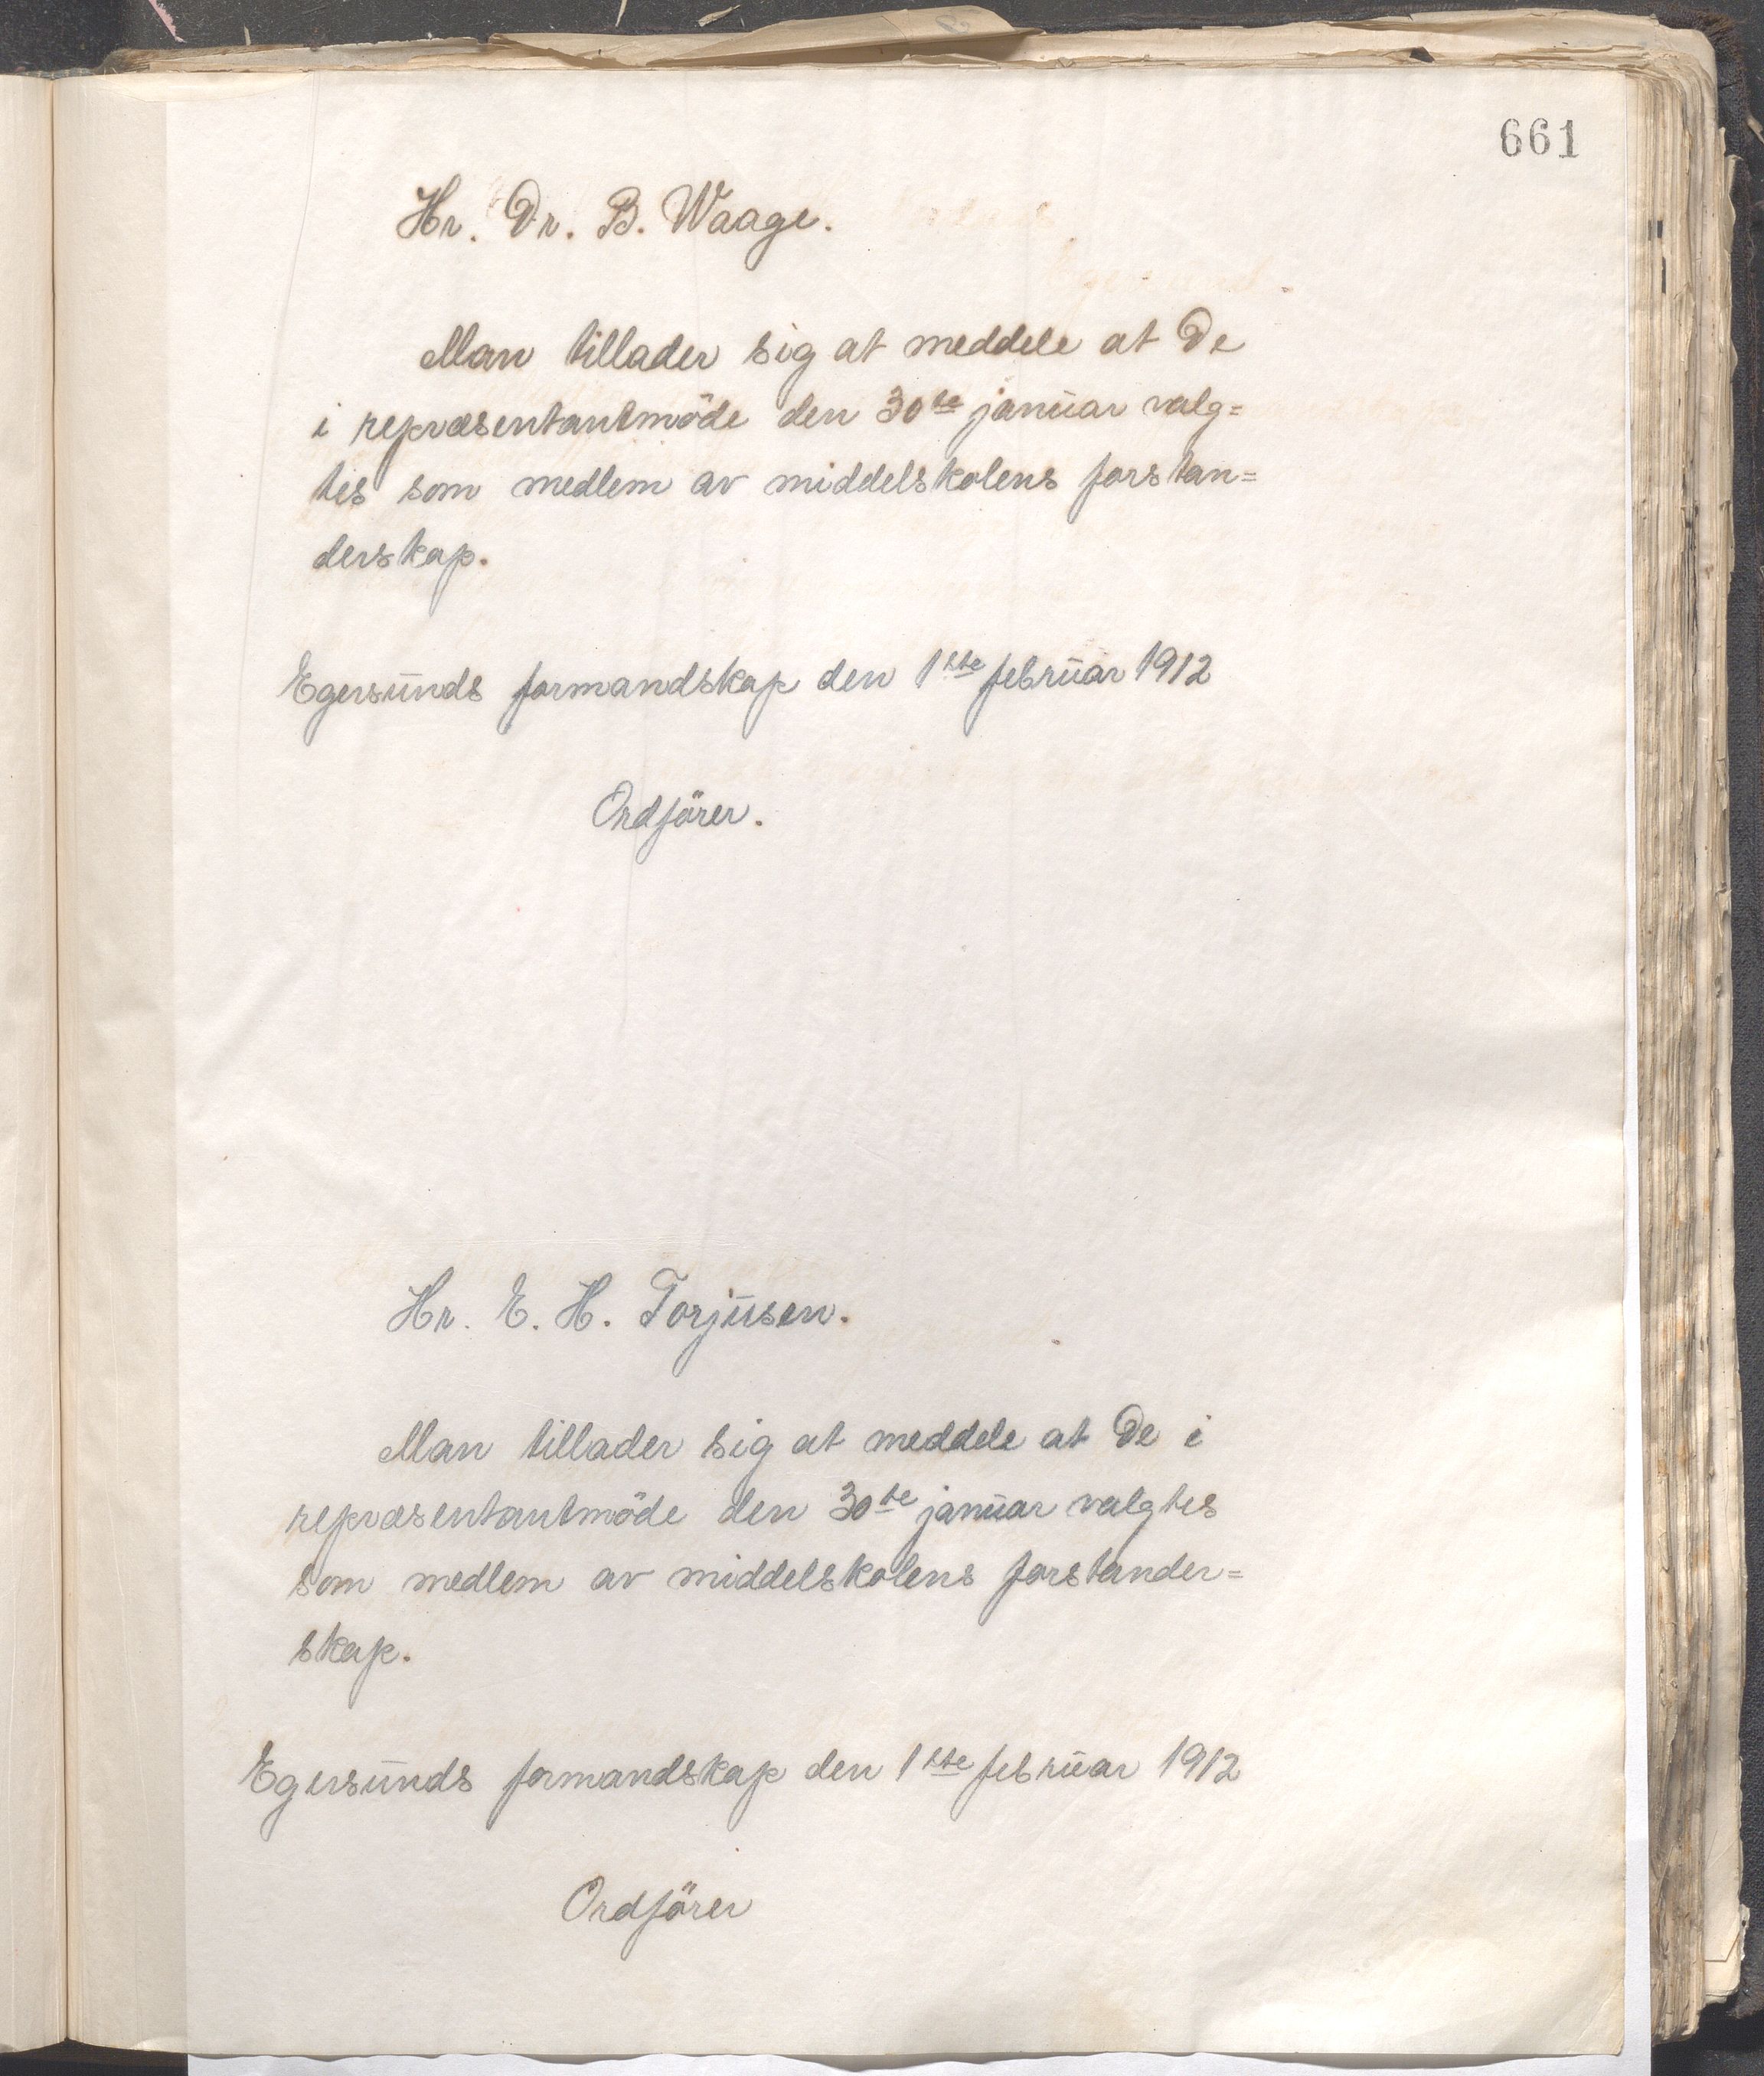 661
Hr. Dr. B. Waage.
Man tillader sig at meddele at De
i repræsentantmöde den 30te januar valg=
tes som medlem av middelskolens forstan=
derskap.
Egersunds formandskap den 1ste februar 1912
Ordförer.
Hr. E. H. Torjusen.
Man tillader sig at meddele at De i
repræsentantmöde den 30te januar valgtes
som medlem av middelskolens forstander=
skap.
Egersunds formandskap den 1ste februar 1912
Ordförer